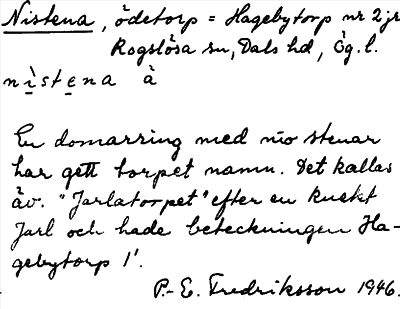 Nistena, ödetorp = Hagebytorp nr 2 jr
Rogslösa sn, Dals hd, Ög. l.
nìstena à
En domarring med nio stenar
har gett torpet namn. Det kallas
äv. "Jarlatorpet" efter en knekt
Jarl och hade beteckningen Ha-
gebytorp 1'.
P.-E. Fredriksson 1946.